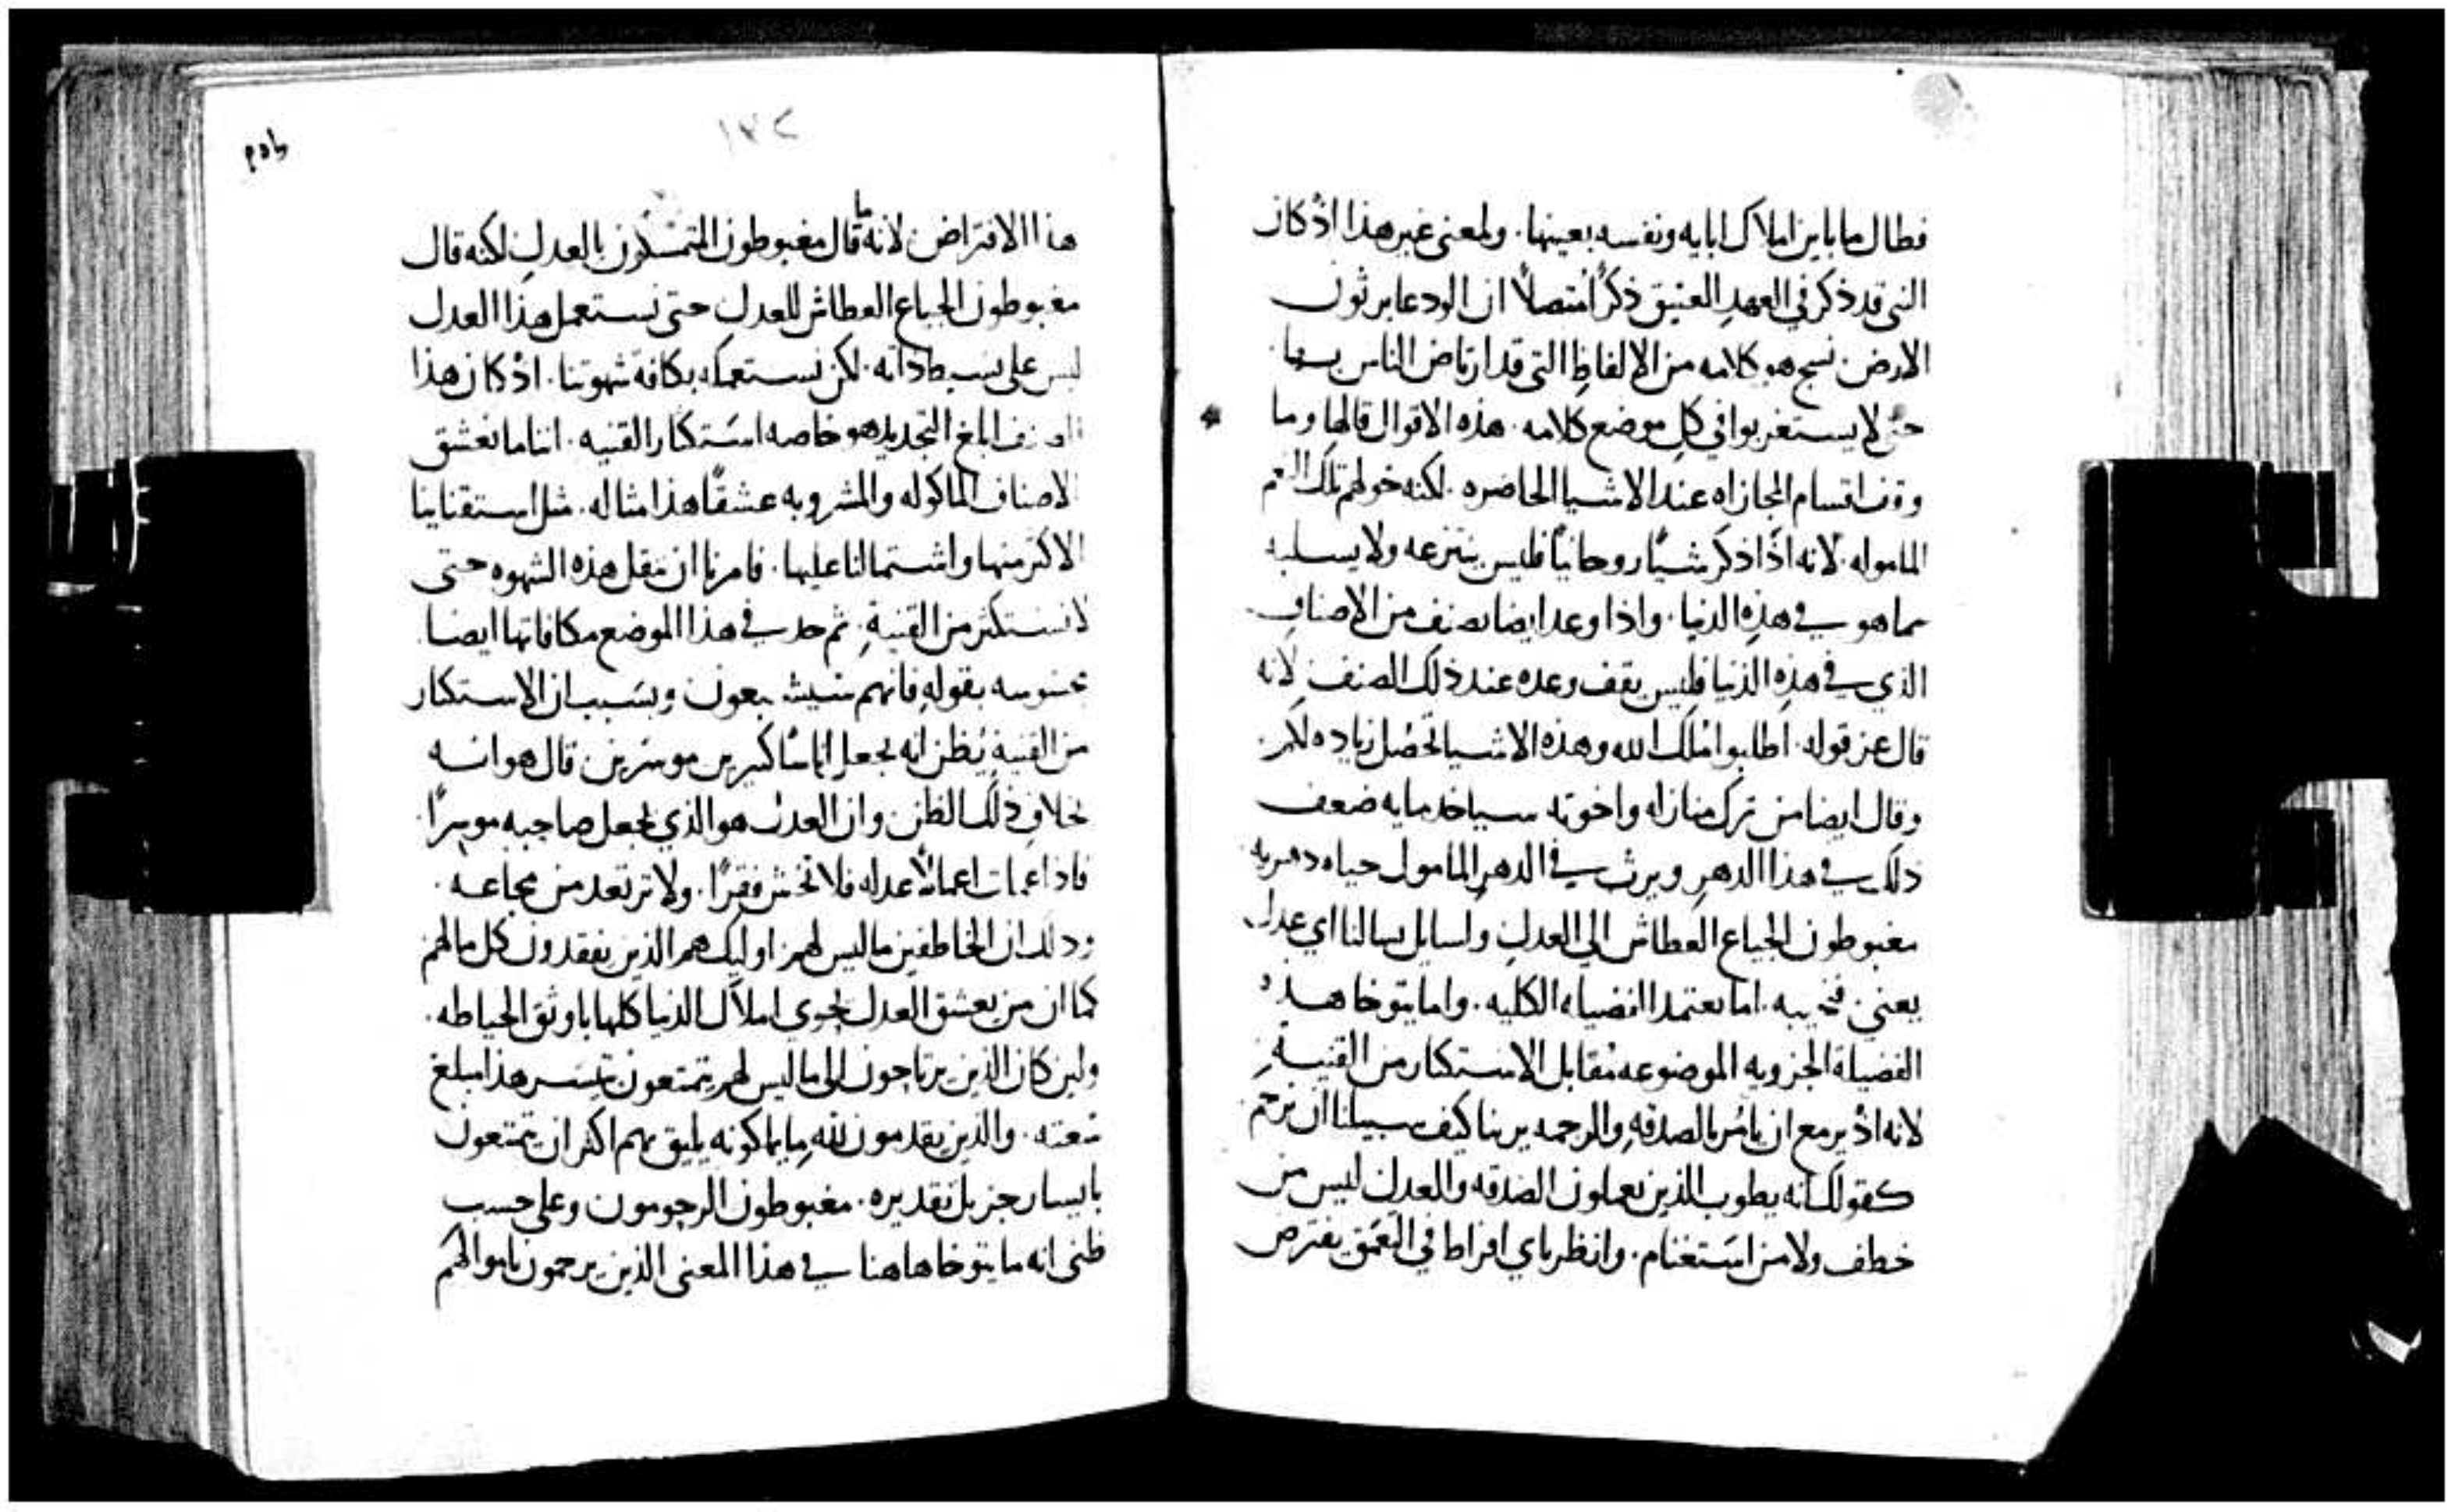 فطال ما باين املاك ابايه ونفسه بعينها. ولمعنى غير هذا اذ كان
النبي قد ذكر في العهد العتيق ذكرًا متصلاً ان الودعا يرثون
الارض. نسج هو كلامه من الالفاظ التي قد ارتاض الناس بسماعها
حتى لا يستغربوا في كل موضع كلامه. هذه الاقوال قالها وما
وقف اقسام المجازاه عند الاشيا الحاضره. لكنه خولهم تلك النعم
الماموله. لانه اذا ذكر شيًا روحانيًا فليس ينتزعه ولا يسلبه
مما هو في هذه الدنيا. واذا وعد ايضا بصنف من الاصناف
الذي في هذه الدنيا فليس يقف وعده عند ذلك الصنف لانه
قال عز قوله. اطلبوا ملك الله وهذه الاشيا تحصل زياده لكم.
وقال ايضا من ترك منازله واخوته سياخد مايه ضعف
ذلك في هذا الدهر ويرث في الدهر المامول حياه دهريه.
مغبوطون الجياع العطاش الى العدل واسايل يسالنا اي عدل
يعني. فنجيبه. اما يعتمد الفضيله الكليه. واما يتوخا هذه
الفضيلة الجزويه الموضوعه مقابل الاستكثار من القنيه.
لانه اذ يزمع ان يامر بالصدقه والرحمه يرينا كيف سبيلنا ان نرحم
كقولك انه يطوب الذين يعملون الصدقه والعدل ليس من
خطف ولا من استغنام. وانظر باي افراط في التعمق يفترض
١٧٢
هذا الافتراض لانه ما قال مغبوطون المتمسكون بالعدل لكنه قال
مغبوطون الجياع العطاش للعدل حتى نستعمل هذا العدل
ليس على بسيط ذاته. لكن نستعمله بكافة شهوتنا. اذ كان هذا
ابلغ التحديد هو خاصه استكثار القنيه. اننا ما نعشق
الاصناف الماكوله والمشروبه عشقًا هذا مثاله. مثل استقناينا
الاكثر منها واشتمالنا عليها. فامرنا ان ننقل هذه الشهوه حتى
لا نستكثر من القنية. ثم حد في هذا الموضع مكافاتها ايضا
محسوسه بقوله فانهم سيشبعون وبسبب ان الاستكثار
من القنية يُظن انه يجعل اناسًا كثيرين موسرين قال هو انه
بخلاف ذلك الظن وان العدل هو الذي يجعل صاحبه موسرًا.
فاذا عملت اعمالاً عدله فلا تخش فقرًا. ولا ترتعد من مجاعه.
وذلك ان الخاطفين ما ليس لهم اوليك هم الذين يفقدون كل ما لهم
كما ان من يعشق العدل يحوي املاك الدنيا كلها باوثق الحياطه.
ولين كان الذين يرتاحون الى ما ليس لهم يتمتعون بيسر هذا مبلغ
سعته. والذين يقدمون لله ما يملكونه يليق بهم اكثر ان يتمتعون
بايسار جزيل تقديره. مغبوطون الرحومون وعلى حسب
ظنى انه ما يتوخا هاهنا في هذا المعنى الذين يرحمون باموالهم